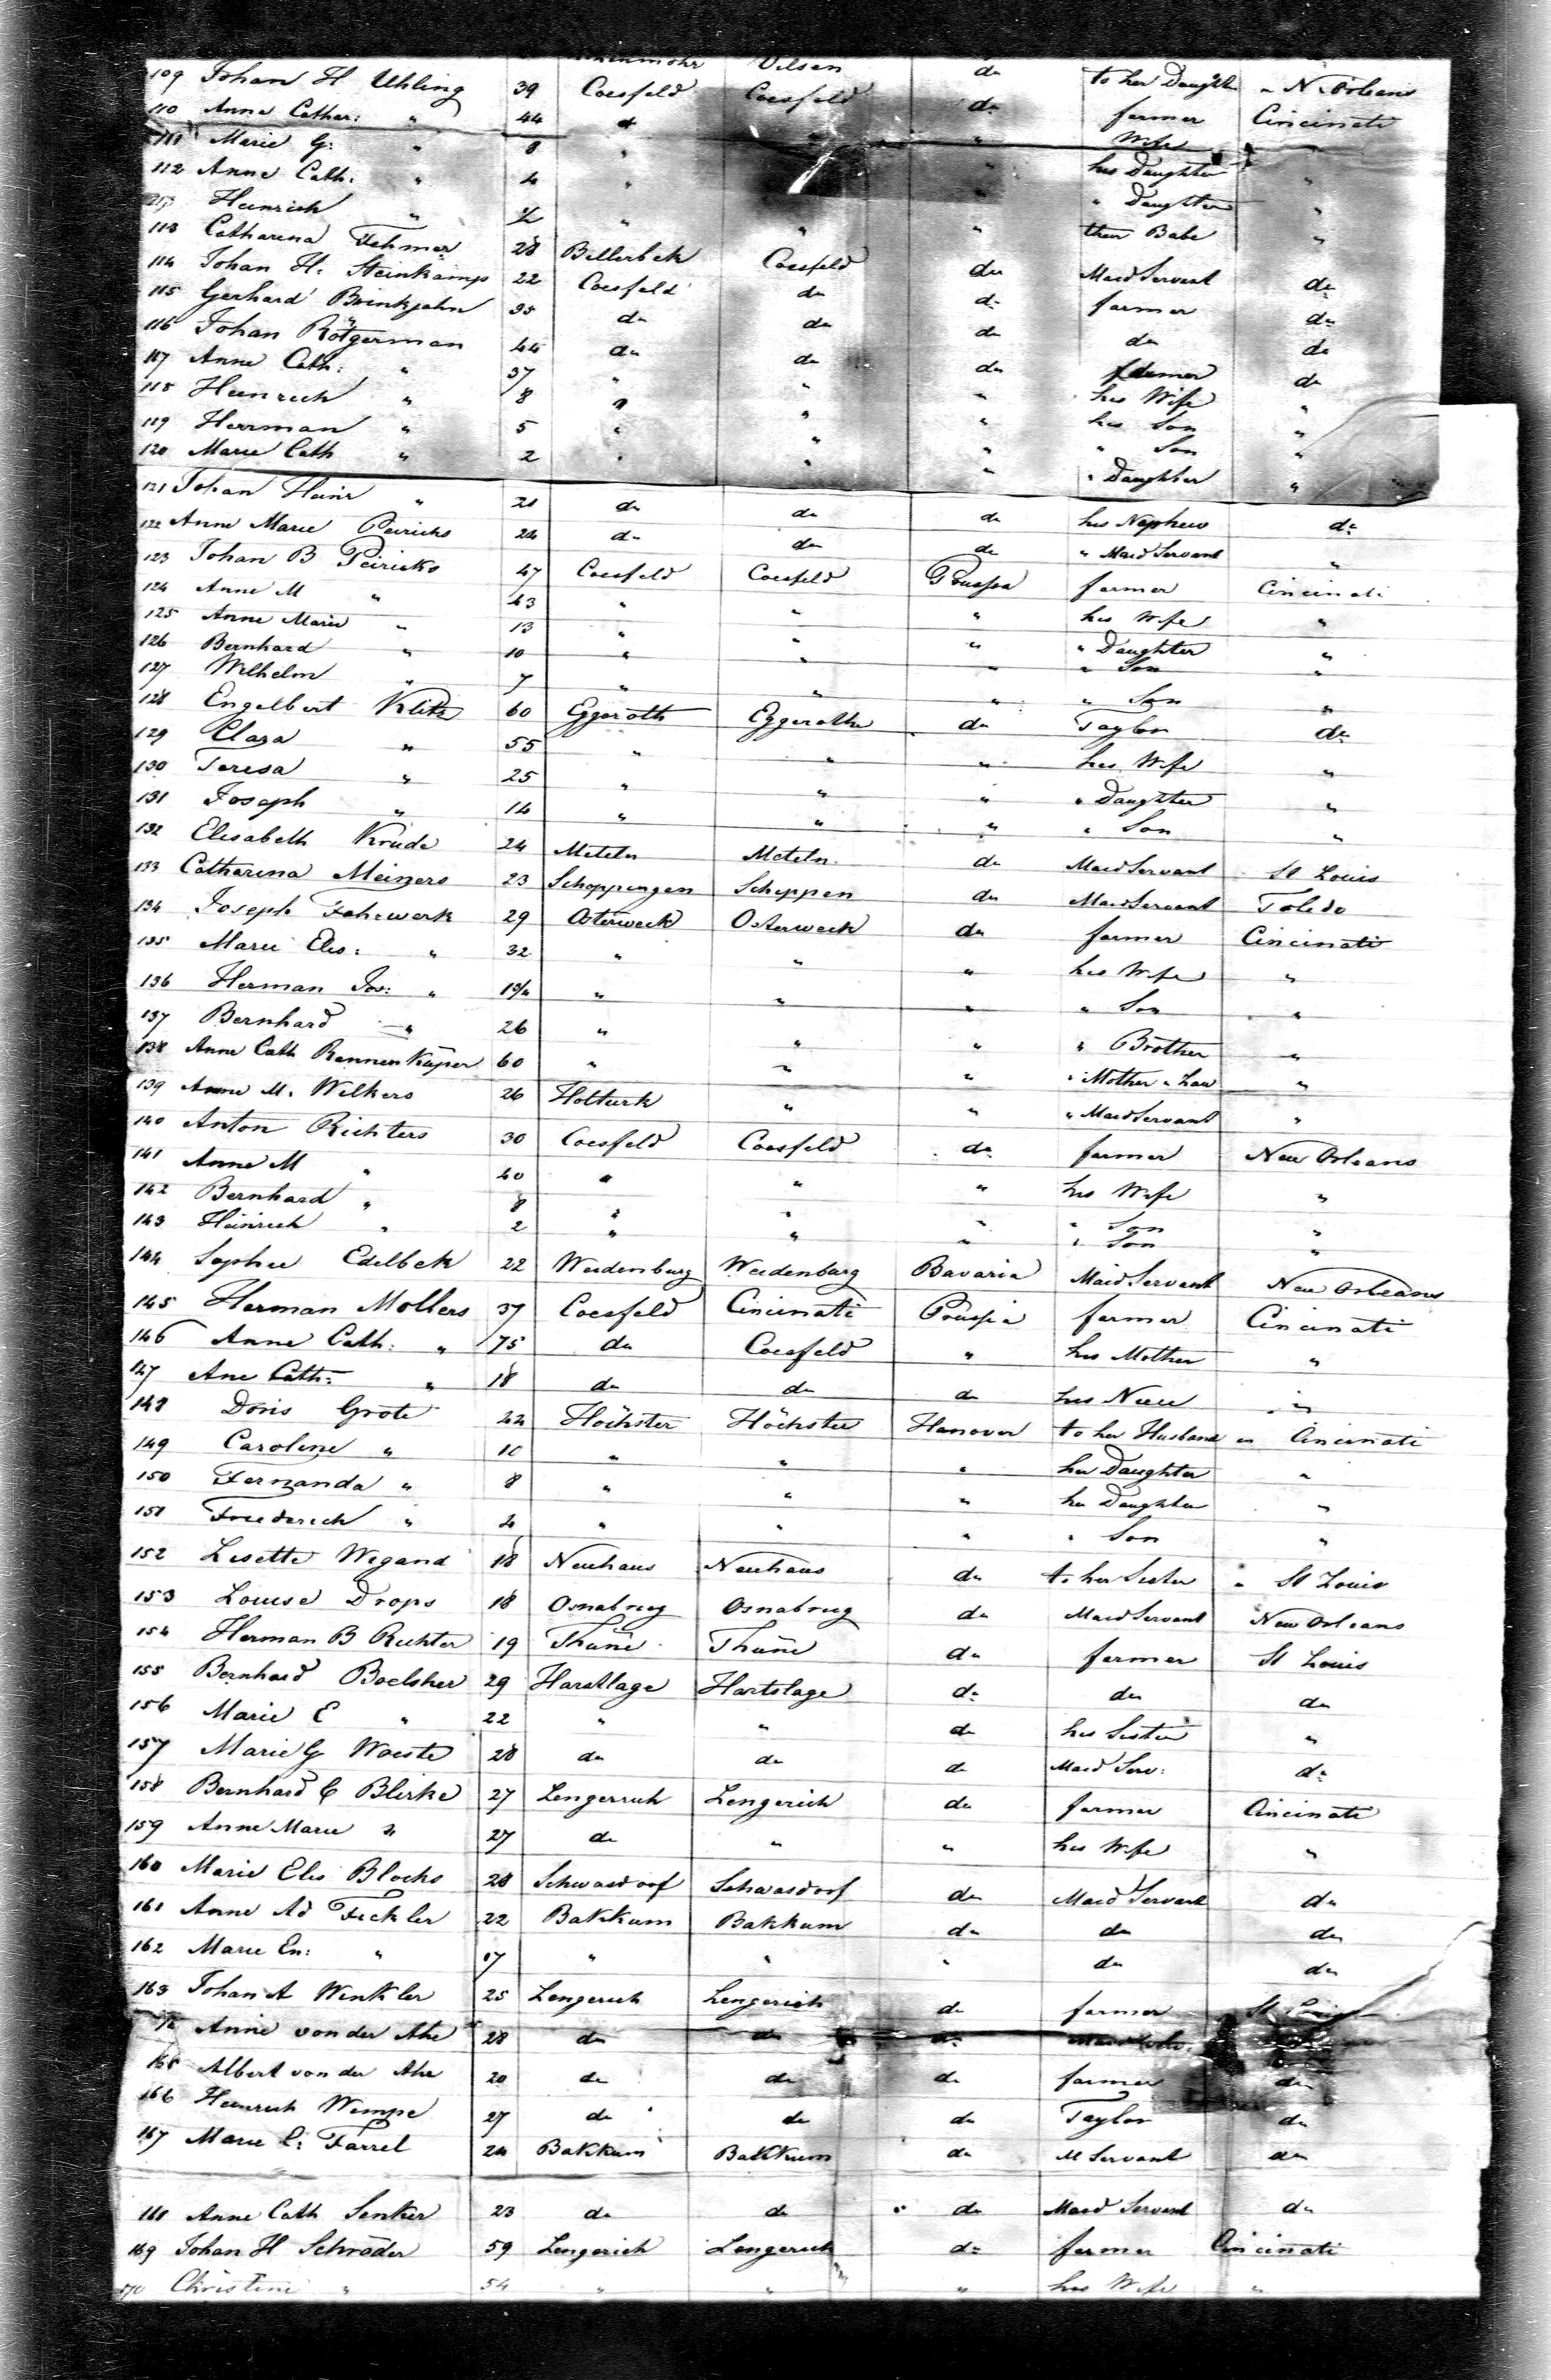 Vilsen do to her Daughter " N Orleans
109 Johan H Uhling 39 Coesfeld Coesfeld do farmer Cincinati
110 Anna Cathar: " 44 " " " Wife
111 Marie G: " 8 " " his Daughter "
112 Anne Cath: " 4 " " Daughter "
Heinrich " " " " their Babe "
113 Catharina Fehmer 28 Billerbek Coesfeld do Maid Servant do
114 Johan H. Steinkamp 22 Coesfeld do do farmer do
115 Gerhard Brinkjahn 35 do do do do do
116 Johan Rötgerman 44 do do do farmer do
117 Anne Cath: " 37 " " " his Wife "
118 Heinrich " 8 " " " his Son "
119 Herrman " 5 " " " " Son "
120 Marie Cath " 2 " " " " Daughter "
121 Johan Heinr " 21 do do do his Nephew do
122 Anne Marie Peiricks 24 do do do " Maid Servant "
123 Johan B Peiricks 47 Coesfeld Coesfeld Prussia farmer Cincinati
124 Anne M " 43 " " " his Wife "
125 Anne Marie " 13 " " " " Daughter "
126 Bernhard " 10 " " " " Son "
127 Wilhelm " 7 " " " " Son "
128 Engelbert Klitz 60 Eggeroth Eggerothe do Taylor do
129 Clara " 55 " " " his Wife "
130 Teresa " 25 " " " " Daughter "
131 Joseph " 14 " " " " Son "
132 Elisabeth Krude 24 Meteln Meteln do Maid Servant St Louis
133 Catharina Meiners 23 Schoppingen Scheppen do Maid Servant Toledo
134 Joseph Fahrwerk 29 Osterweck Osterweck do farmer Cincinati
135 Marie Elis: " 32 " " " his Wife "
136 Herman Jos: " 1 3/4 " " " " Son "
137 Bernhard " 26 " " " " Brother "
138 Anne Cath Rannenkäper 60 " " " " Mother " Law "
139 Anne M. Welkers 26 Holturk " " " Maid Servant "
140 Anton Richters 30 Coesfeld Coesfeld do farmer New Orleans
141 Anne M " 40 " " " his Wife "
142 Bernhard " 8 " " " " Son "
143 Heinrich " 2 " " " " Son "
144 Sophie Edelbek 22 Weidenburg Weidenburg Bavaria Maid Servant New Orleans
145 Herman Mollers 37 Coesfeld Cincinati Prussia farmer Cincinati
146 Anne Cath: " 75 do Coesfeld " his Mother "
147 Ane Cath: " 18 do do do his Niece "
148 Doris Grote 44 Höchster Höchster Hanover to her Husband in Cincinati
149 Caroline " 10 " " " her Daughter "
150 Fernanda " 8 " " " her Daughter "
151 Friederich " 4 " " " " Son "
152 Lisette Wegand 18 Neuhaus Neuhaus do to her Sister " St Louis
153 Louise Drops 18 Osnabrug Osnabrug do Maid Servant New Orleans
154 Herman B Richter 19 Thüne Thüne do farmer St Louis
155 Bernhard Boelsher 29 Harstlage Hartslage do do do
156 Marie E " 22 " " do his Sister "
157 Marie G Woeste 28 do do do Maid Serv: do
158 Bernhard C Blirke 27 Lengerich Lengerich do farmer Cincinati
159 Anne Marie " 27 do " " his Wife "
160 Marie Elis Blocks 28 Schwasdorf Schwasdorf do Maid Servant do
161 Anne Ad Feckler 22 Bakkum Bakkum do do do
162 Marie En: " 17 " " " do do
163 Johan A Winkler 25 Lengerich Lengerich do farmer St Louis
Anne von der Ahe 28 do do do
165 Albert von der Ahe 20 do do do farmer do
166 Heinrich Wempe 27 do do do Taylor do
167 Marie C: Farrel 24 Bakkum Bakkum do M Servant do
168 Anne Cath Senker 23 do do do Maid Servant do
169 Johan H Schröder 59 Lengerich Lengerich do farmer Cincinati
170 Christine " 54 " " " his Wife "